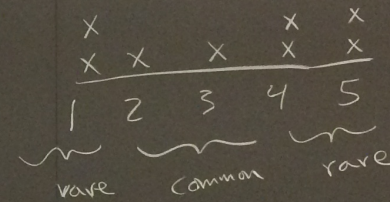 x x x
x x x x x
1 2 3 4 5
rare common rare